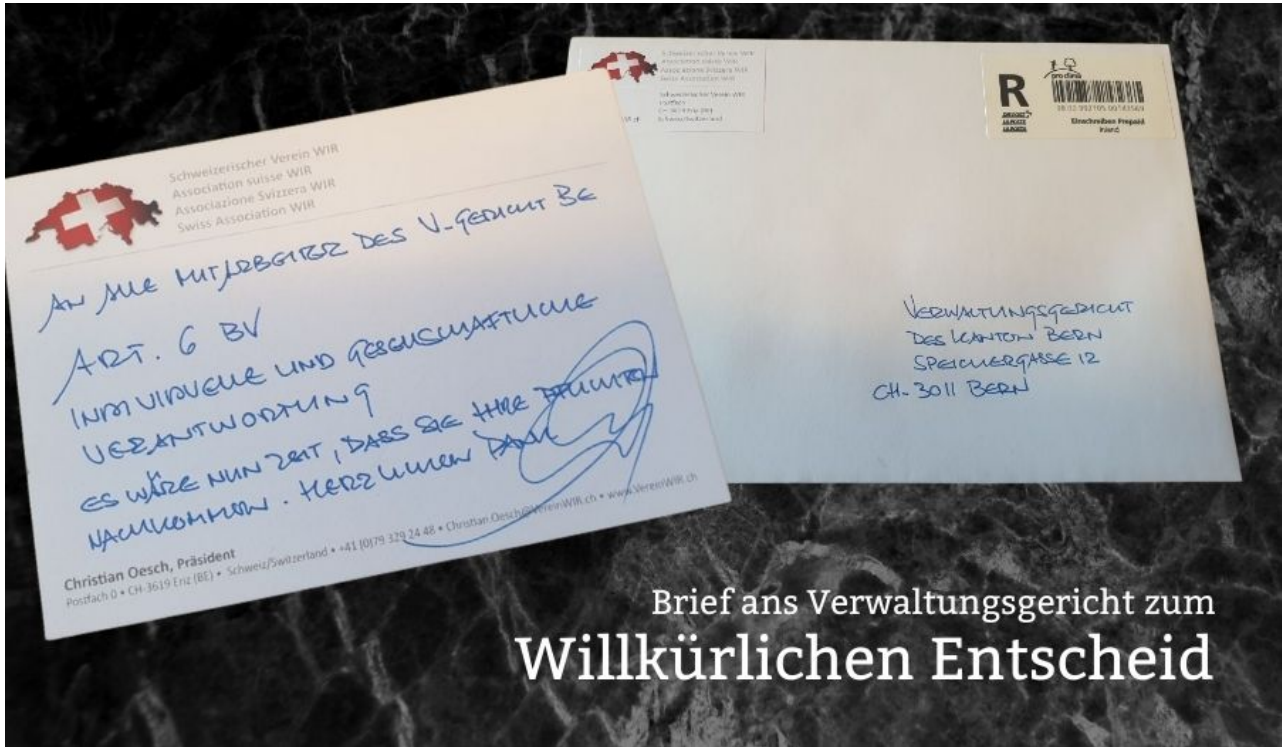 Schweizerischer Verein WIR
Association suisse WIR
Associazione Svizzera WIR
Swiss Association WIR
AN ALLE MITARBEITER DES V-GERICHT BE
ART. 6 BV
INDIVIDUELLE UND GESELLSCHAFTLICHE
VERANTWORTUNG
ES WÄRE NUN ZEIT, DASS SIE IHRE PFLICHTEN
NACHKOMMEN. HERZLICHEN DANK
Christian Oesch, Präsident
Postfach 0 • CH-3619 Eriz (BE) • Schweiz/Switzerland • +41 (0)79 329 24 48 • Christian.Oesch@VereinWIR.ch • www.VereinWIR.ch
Schweizerischer Verein WIR
Association suisse WIR
Associazione Svizzera WIR
Swiss Association WIR
Schweizerischer Verein WIR
Postfach
R
pro clima
Einschreiben Prepaid
Inland
VERWALTUNGSGERICHT
DES KANTON BERN
SPEICHERGASSE 12
CH-3011 BERN
Brief ans Verwaltungsgericht zum
Willkürlichen Entscheid